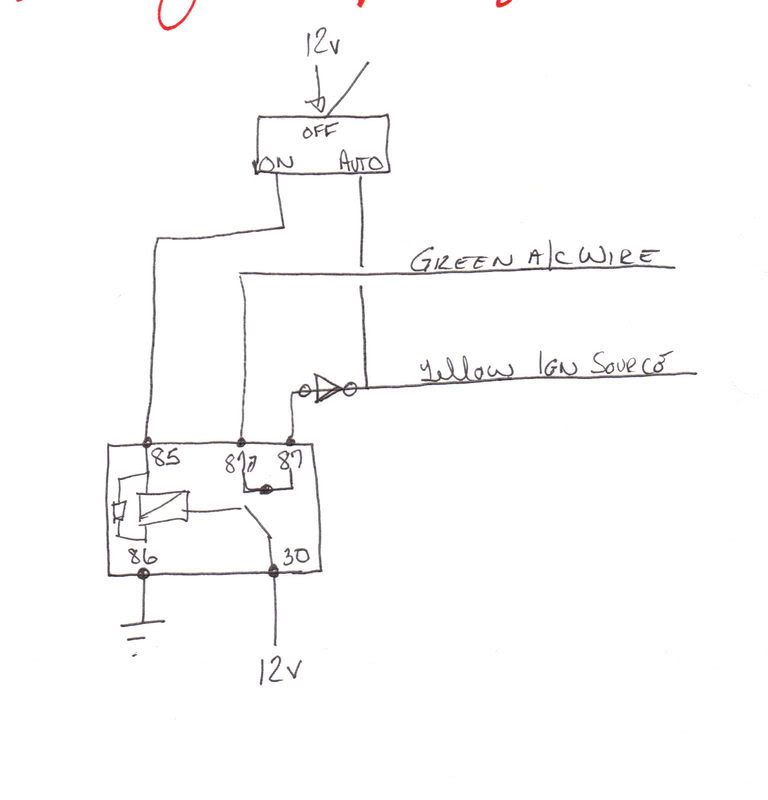 12v
OFF
ON AUTO
GREEN A/C WIRE
Yellow IGN SOURCE
85 87a 87
86 30
12v